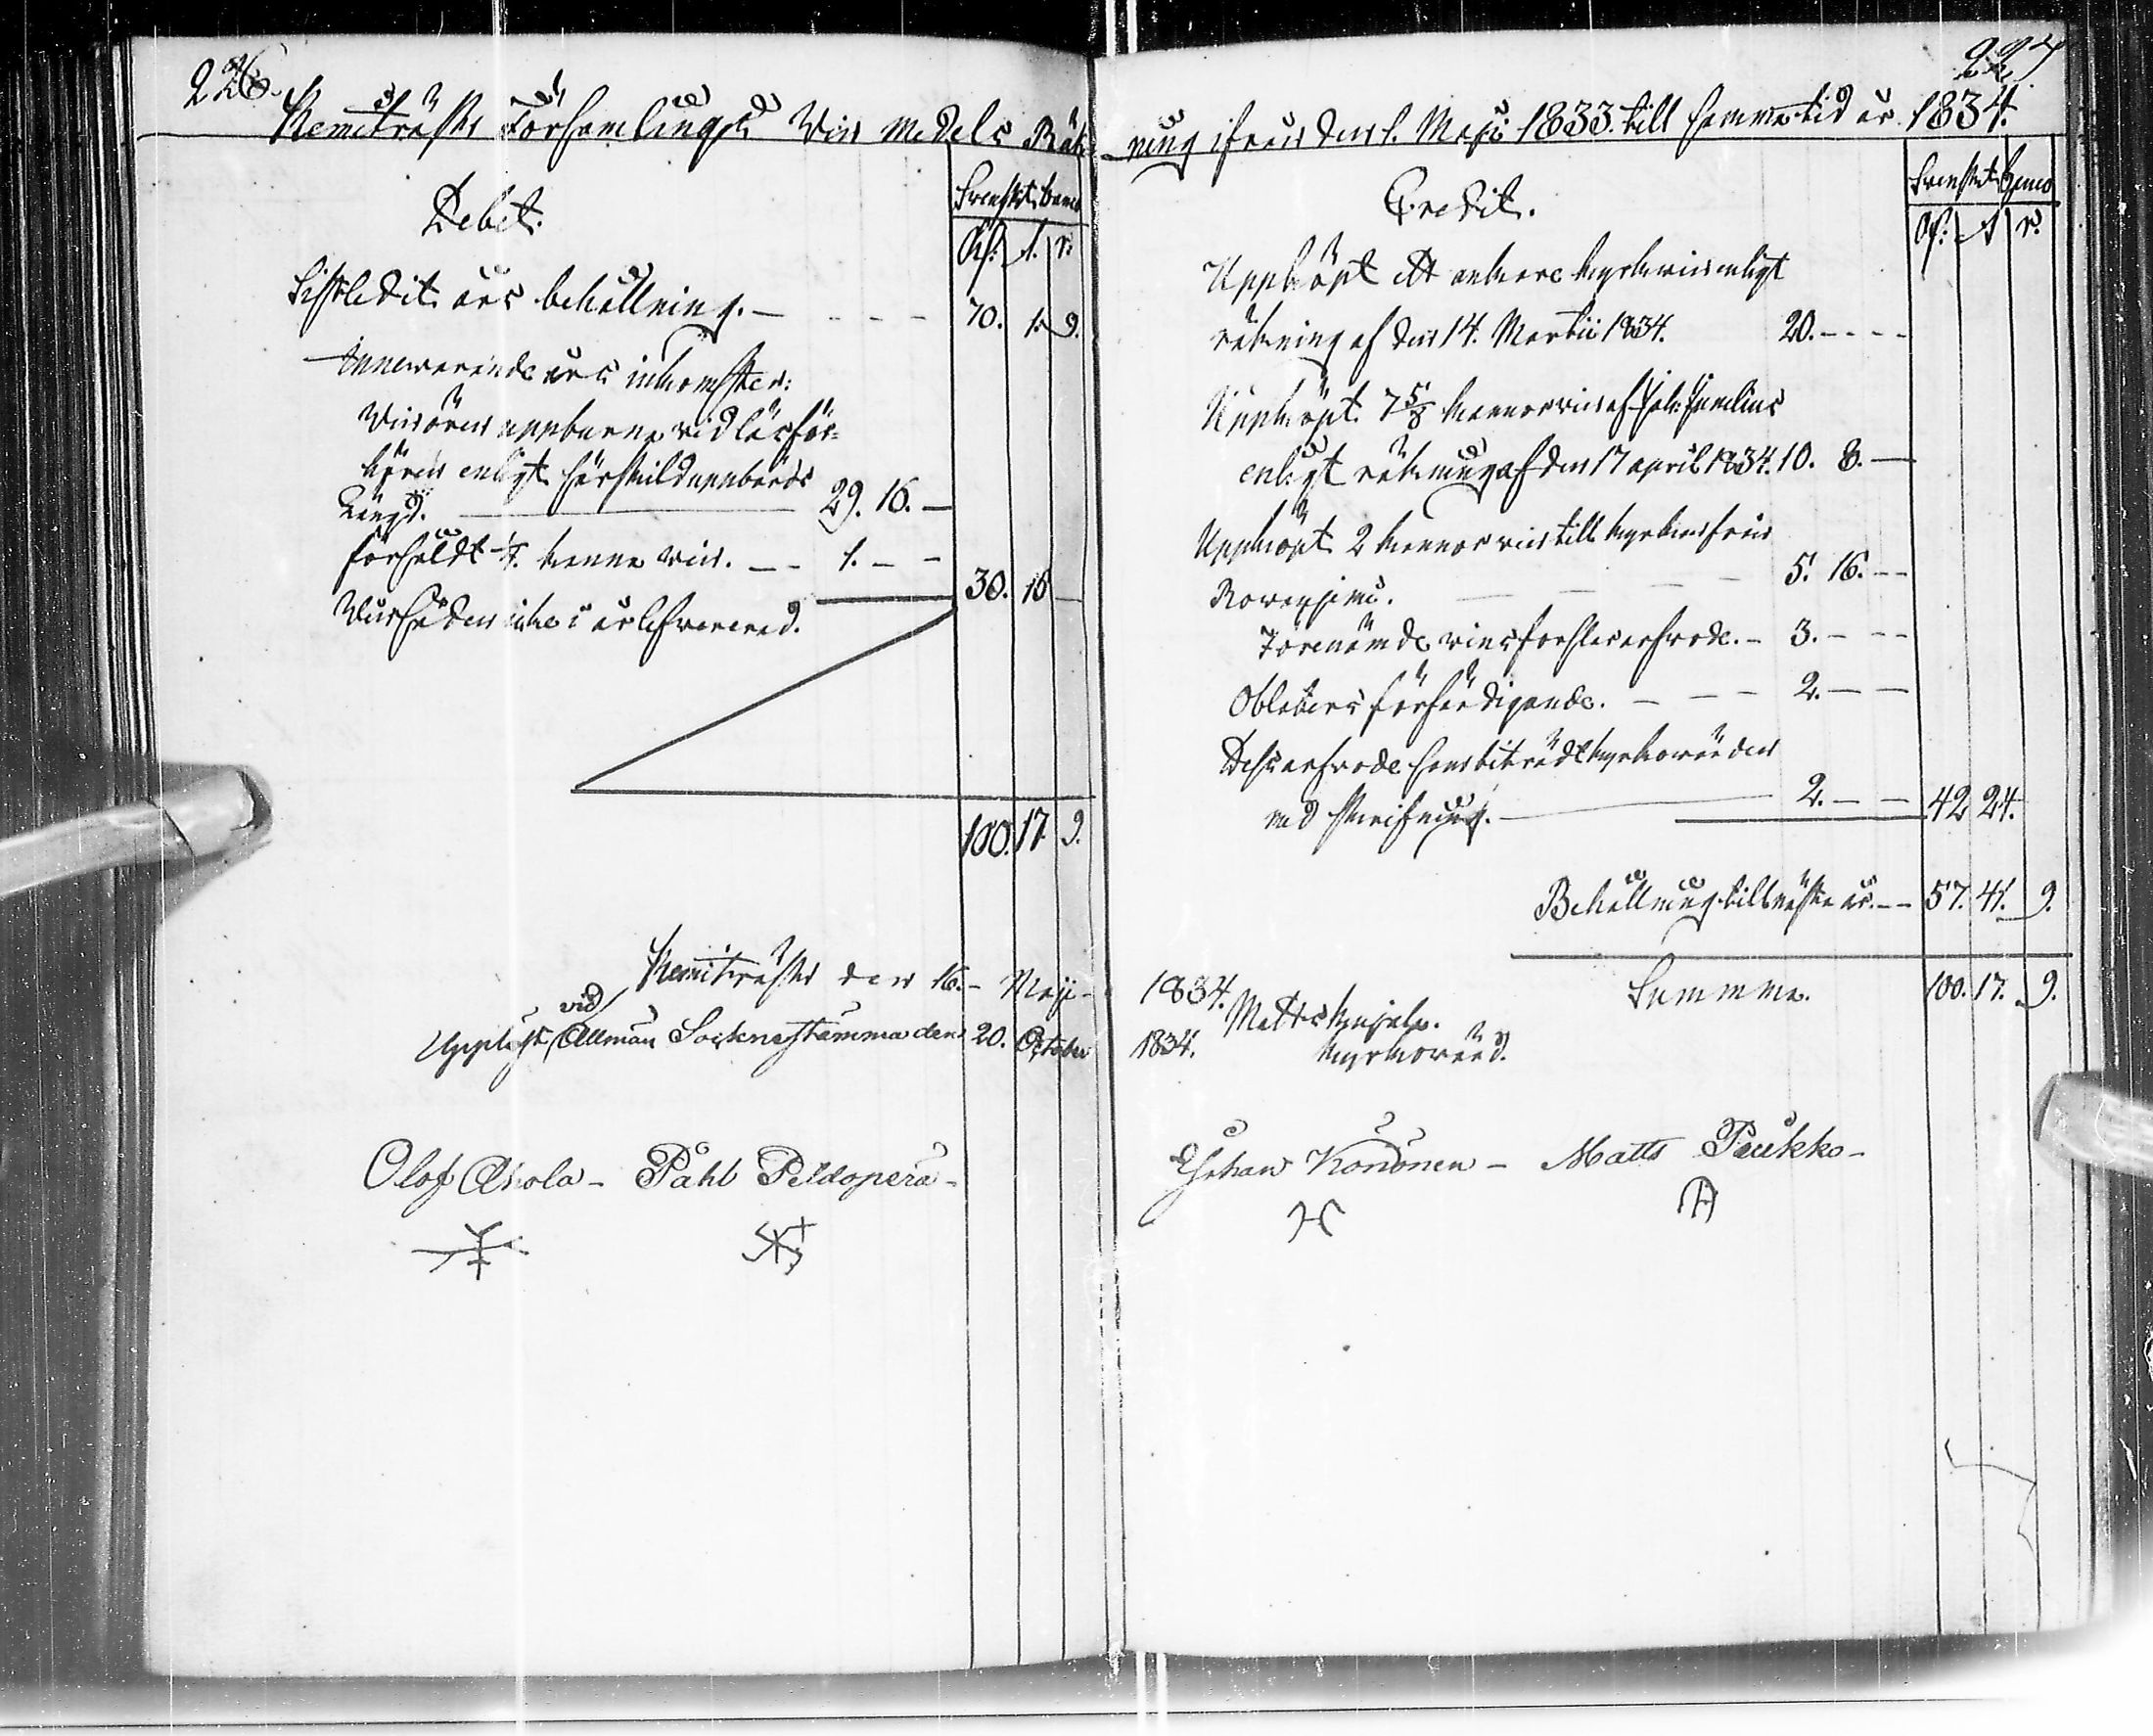 226.
Kemiträsks Församlings Vin medels Räk-
Debet.
Svenskt banco
Rd. s. r.
Sistledit års behållning. — - - - 70. 1. 9.
Innewarande års inkomster:
Vinören uppburna vid läsför-
hören enligt särskild uppbörds
Längd. — 29. 16. —
försåldt 1/4. kanna vin. — - 1. — - 30. 16 —
Vinsåden icke i år lefvererad.
100. 17. 9.
Kemiträsk den 16. - Maji -
vid
Uppläst Allmän Sockenstämma den 20. October
Olof Ahola - Påhl Peldoperä -
227
ning ifrån den 1. Maji 1833. till samma tid år 1834.
Credit.
Svenskt banco
Rd. s. r.
Uppköpt ett ankare kyrkovin enligt
räkning af den 14. Martii 1834. 20. - - -
Uppköpt 7 5/8 kannor vin af
enligt räkning af den 17 april 1834. 10. 8. —
Uppköpt 2 kannor vin till kyrkan från
Rovaniemi. — — — 5. 16. --
Förenämde vins forslararfvode. - 3. - --
Oblaters förfärdigande. — — — 2. — —
Dess arfvode som biträdt kyrkovärden
med skrifning. — 2. — — 42 24.
Behållning till nästa år. — - 57. 41. 9.
1834. Summa. 100. 17. 9.
Matts
1834. kyrkovärd.
Johan Kononen - Matts Paukko -